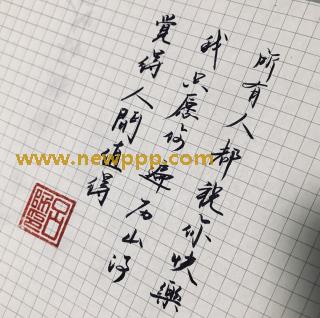 所有人都祝你快樂
我只愿你遍历山河
覺得人間值得
www.newppp.com